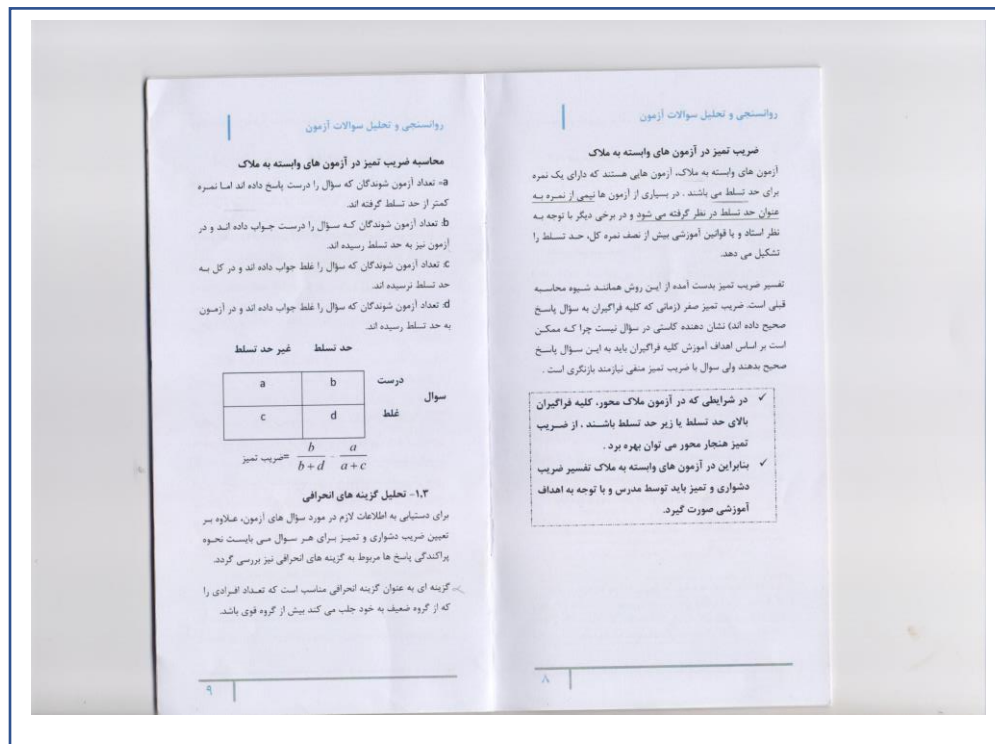 روانسنجی و تحلیل سوالات آزمون
ضریب تمیز در آزمون های وابسته به ملاک
آزمون های وابسته به ملاک، آزمون هایی هستند که دارای یک نمره
برای حد تسلط می باشند . در بسیاری از آزمون ها نیمی از نمره به
عنوان حد تسلط در نظر گرفته می شود و در برخی دیگر با توجه به
نظر استاد و یا قوانین آموزشی بیش از نصف نمره کل، حد تسلط را
تشکیل می دهد.
تفسیر ضریب تمیز بدست آمده از این روش همانند شیوه محاسبه
قبلی است. ضریب تمیز صفر (زمانی که کلیه فراگیران به سؤال پاسخ
صحیح داده اند) نشان دهنده کاستی در سؤال نیست چرا که ممکن
است بر اساس اهداف آموزش کلیه فراگیران باید به این سؤال پاسخ
صحیح بدهند ولی سوال با ضریب تمیز منفی نیازمند بازنگری است .
✓ در شرایطی که در آزمون ملاک محور، کلیه فراگیران
بالای حد تسلط یا زیر حد تسلط باشند ، از ضریب
تمیز هنجار محور می توان بهره برد .
✓ بنابراین در آزمون های وابسته به ملاک تفسیر ضریب
دشواری و تمیز باید توسط مدرس و با توجه به اهداف
آموزشی صورت گیرد.
۸
روانسنجی و تحلیل سوالات آزمون
محاسبه ضریب تمیز در آزمون های وابسته به ملاک
a- تعداد آزمون شوندگان که سؤال را درست پاسخ داده اند اما نمره
کمتر از حد تسلط گرفته اند.
b: تعداد آزمون شوندگان که سؤال را درست جواب داده اند و در
آزمون نیز به حد تسلط رسیده اند.
c: تعداد آزمون شوندگان که سؤال را غلط جواب داده اند و در کل به
حد تسلط نرسیده اند.
d: تعداد آزمون شوندگان که سؤال را غلط جواب داده اند و در آزمون
به حد تسلط رسیده اند.
حد تسلط غیر حد تسلط
درست b a
سوال
غلط d c
ضریب تمیز= b/(b+d) - a/(a+c)
۱,۳- تحلیل گزینه های انحرافی
برای دستیابی به اطلاعات لازم در مورد سؤال های آزمون، علاوه بر
تعیین ضریب دشواری و تمیز برای هر سوال می بایست نحوه
پراکندگی پاسخ ها مربوط به گزینه های انحرافی نیز بررسی گردد.
گزینه ای به عنوان گزینه انحرافی مناسب است که تعداد افرادی را
که از گروه ضعیف به خود جلب می کند بیش از گروه قوی باشد.
۹